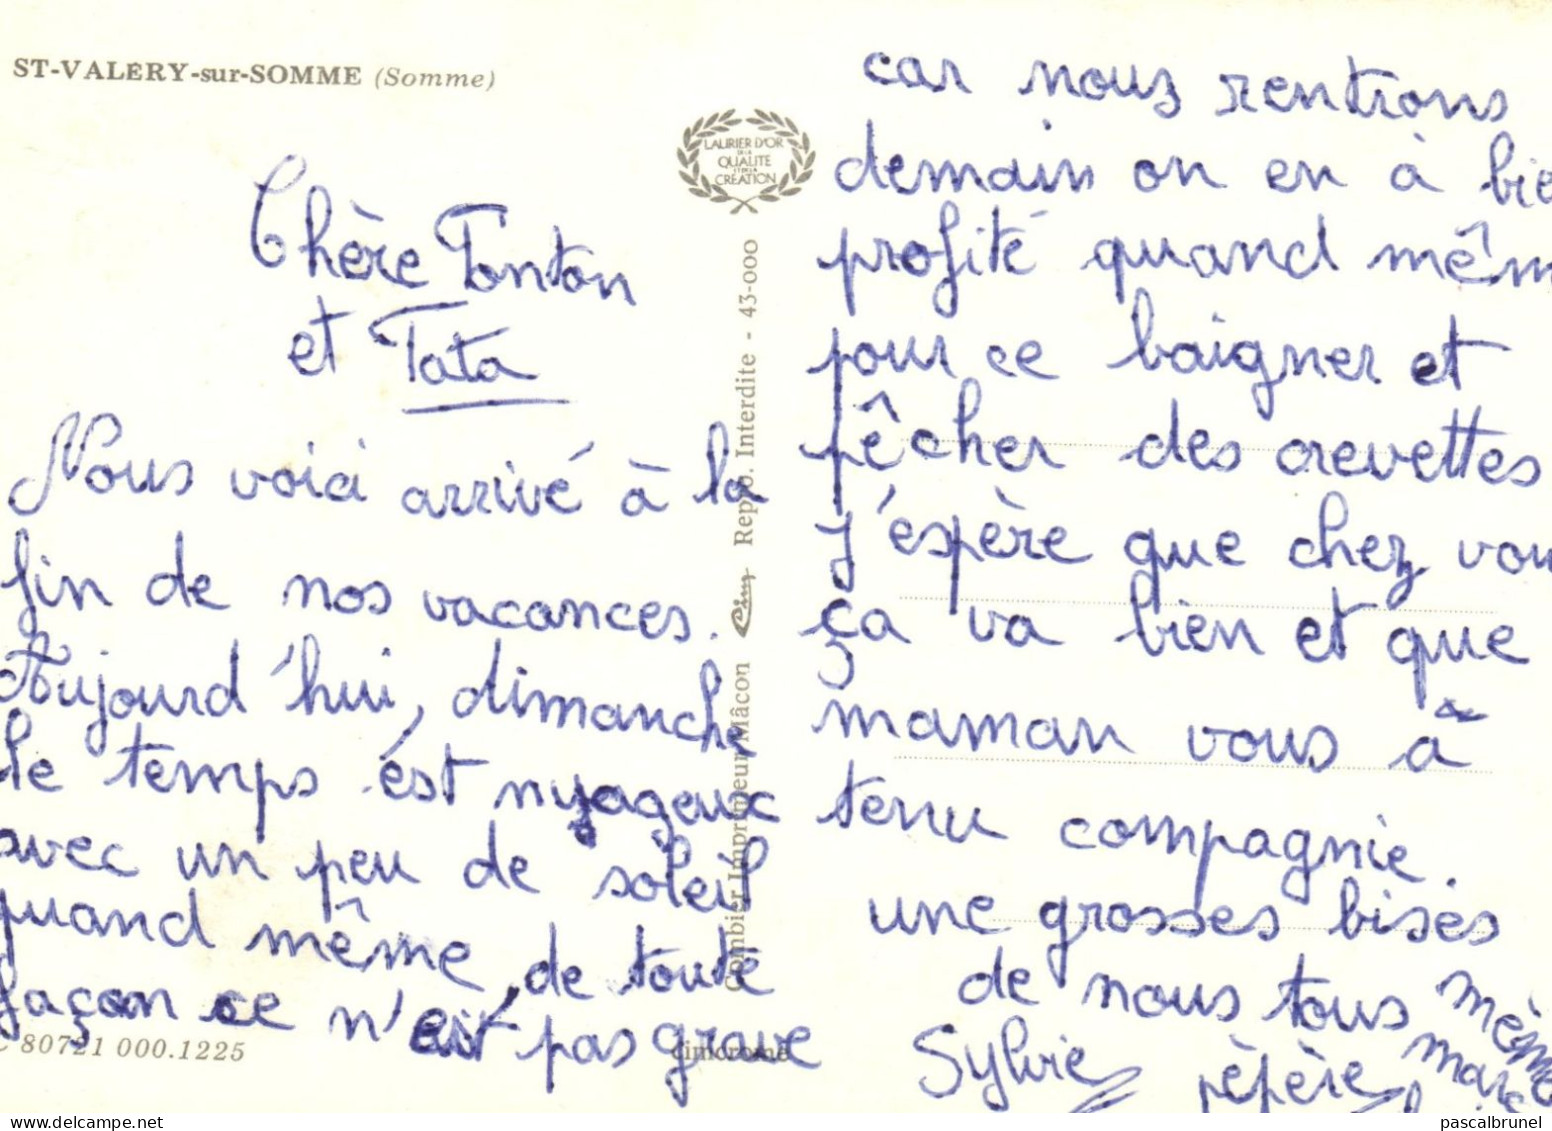 ST-VALERY-sur-SOMME (Somme)
LAURIER D'OR
DE LA
QUALITE
ET DE LA
CRÉATION
Chère Tonton
et Tata
Nous voici arrivé à la
fin de nos vacances.
Aujourd'hui, dimanche
le temps ést nuageux
avec un peu de soleil
quand même, de toute
façon ce n'est pas grave
car nous rentrons
demain on en à bie
profité quand mêm
pour ce baigner et
pêcher des crevettes
J'espère que chez vou
ça va bien et que
maman vous à
tenu compagnie.
une grosses bises
de nous tous
Sylvie pépère
mémé
Combier Imprimeur Mâcon Cim Repro. Interdite - 43-000
C 80721 000.1225
cimcrome
delcampe.net
pascalbrunel